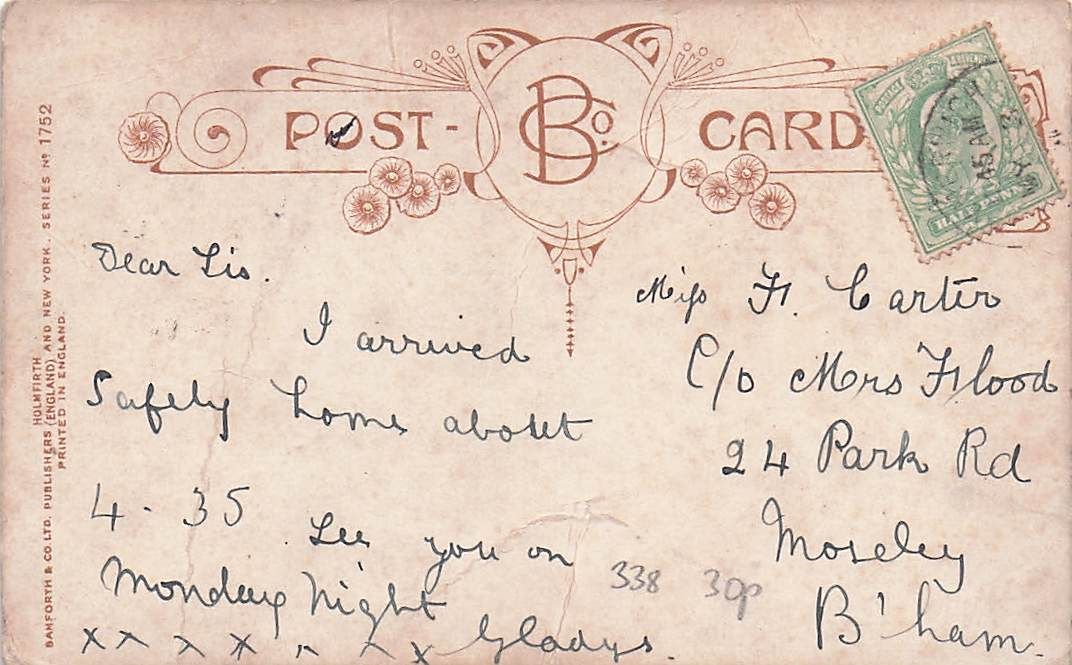 POST - BCo. CARD
HALF PENNY
BAMFORTH & CO. LTD. PUBLISHERS (ENGLAND) AND NEW YORK. SERIES No 1752
HOLMFIRTH
PRINTED IN ENGLAND.
Dear Sis.
I arrived
Safely home about
4 - 35 See you on
Monday night
Gladys.
Miss F. Carter
C/o Mrs Flood
24 Park Rd
Moseley
B'ham.
338 30p